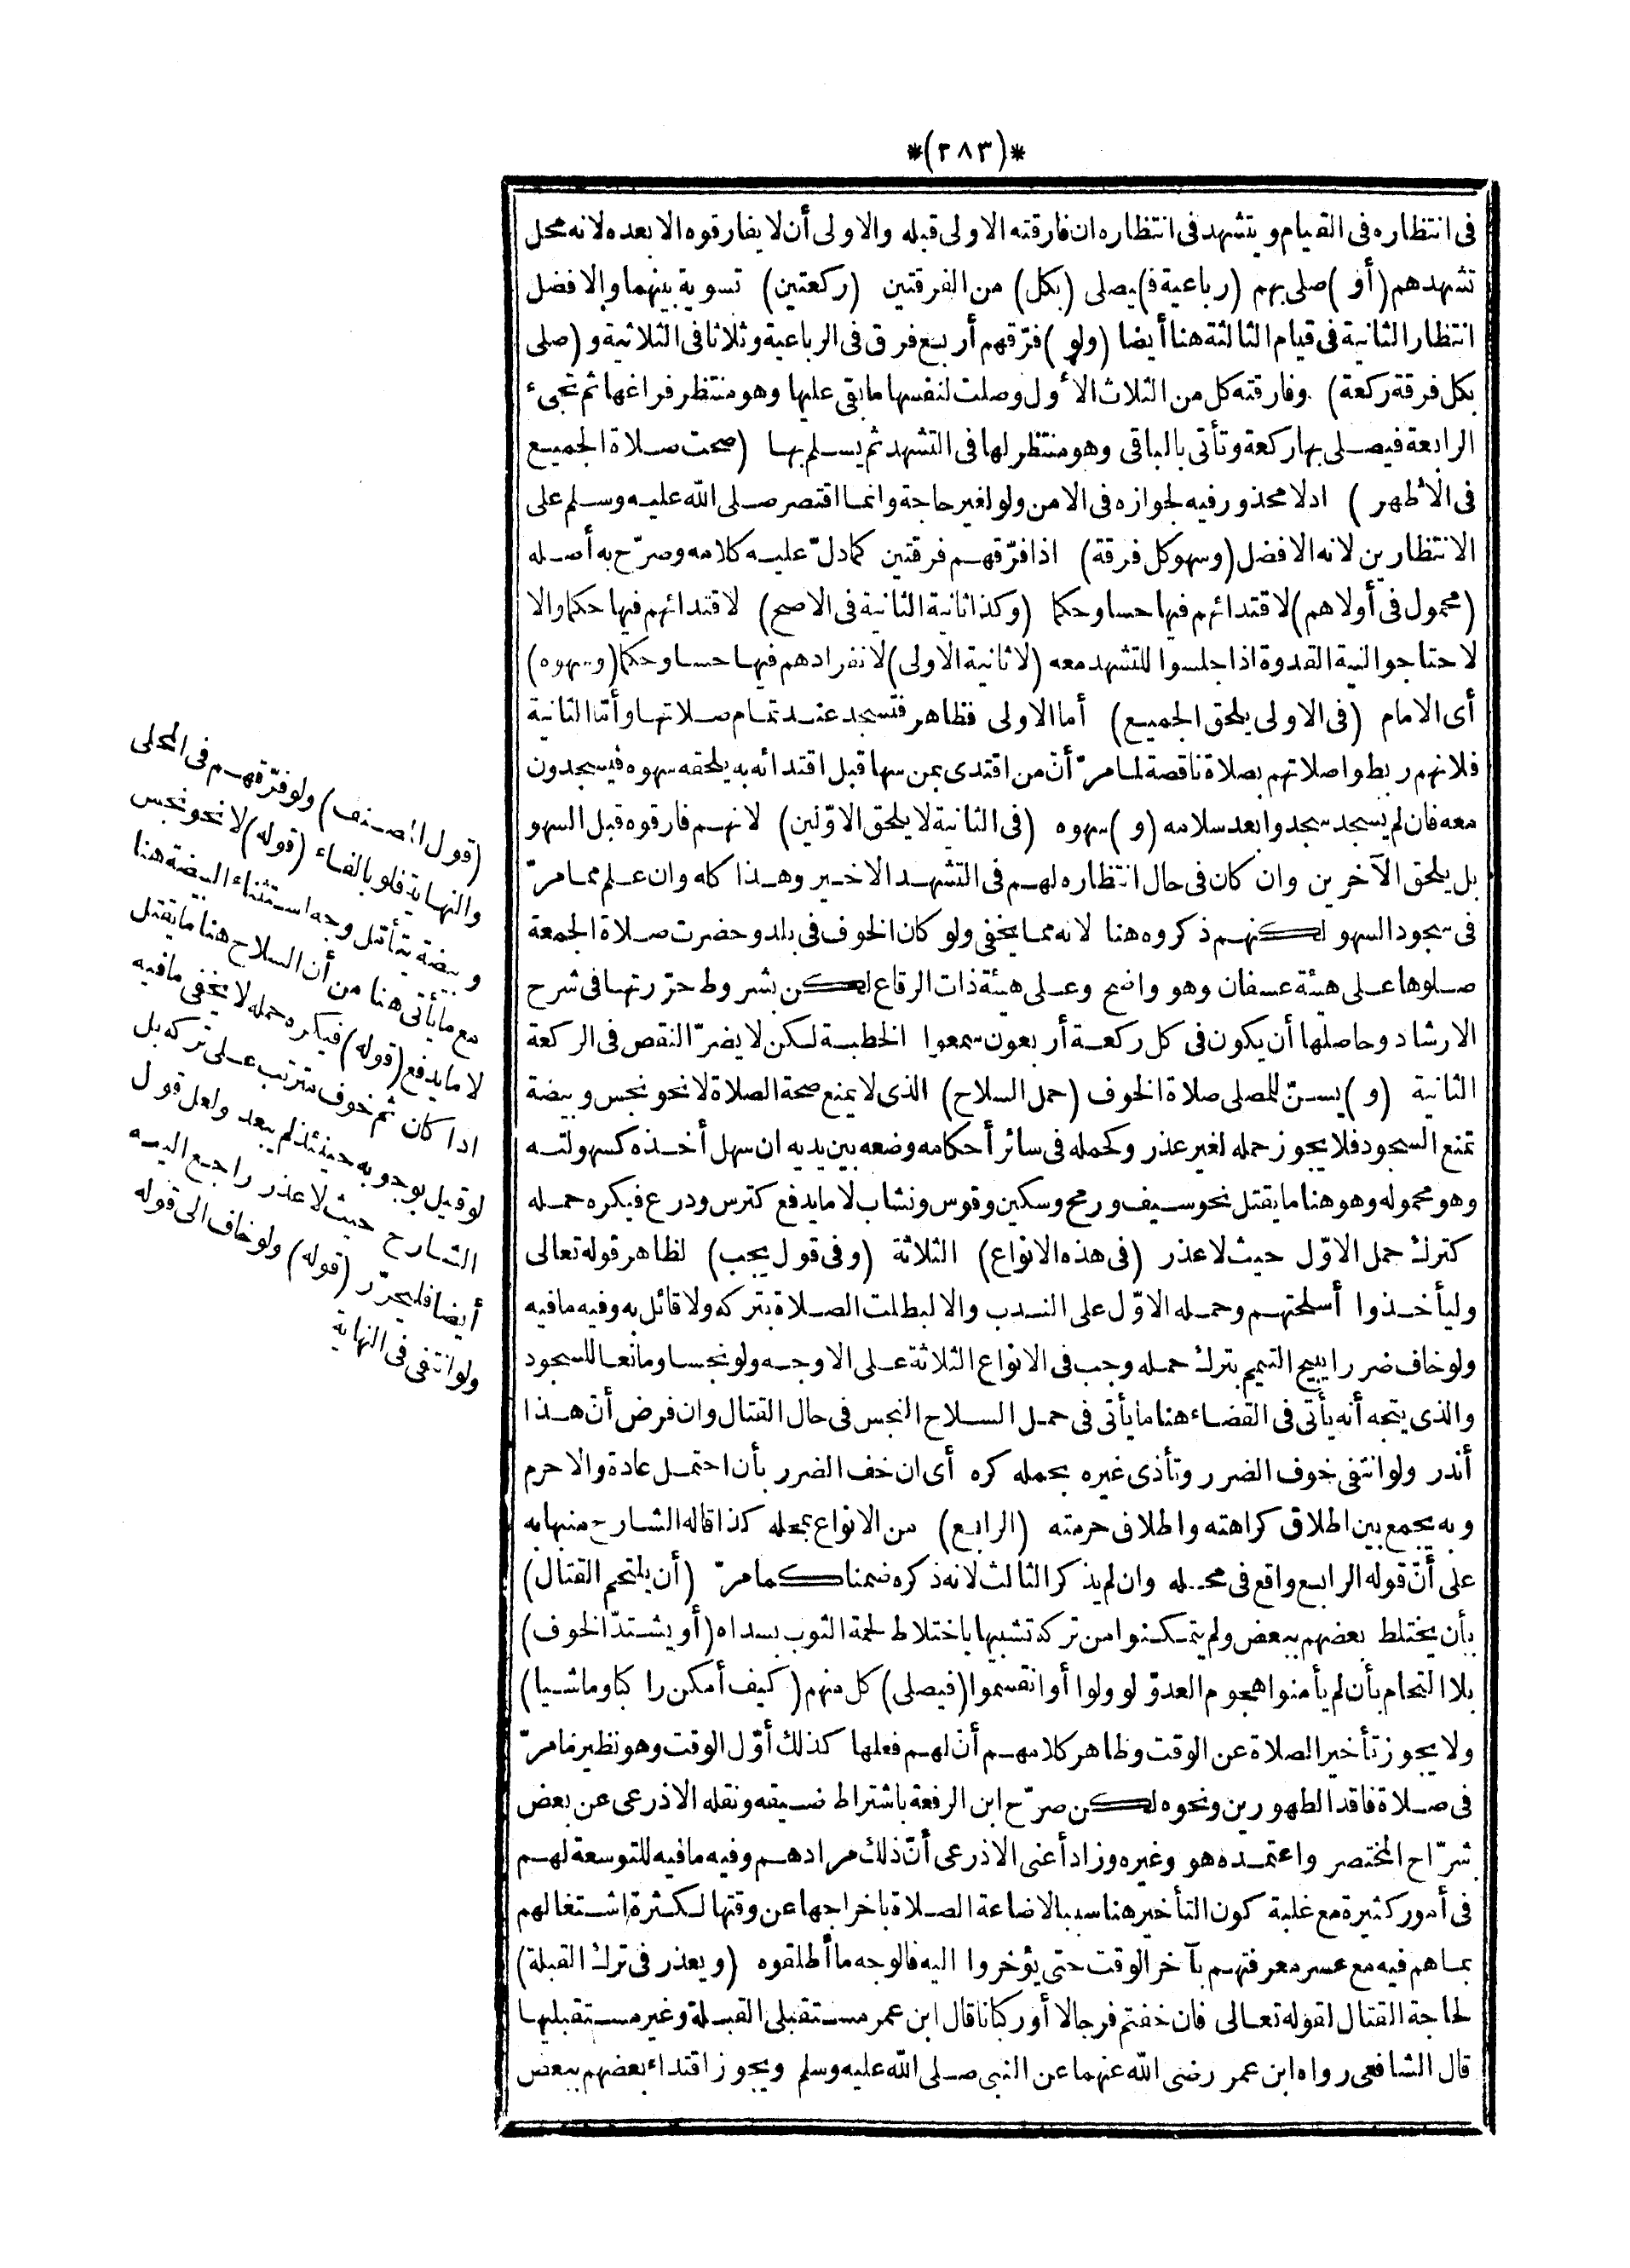 *(٢٨٣)*
فى انتظاره فى القيام ويتشهد فى انتظاره ان فارقته الاولى قبله والاولى أن لا يفارقوه الا بعده لانه محل
تشهدهم (أو) صلى بهم (رباعية ف) يصلى (بكل) من الفرقتين (ركعتين) تسوية بينهما والافضل
انتظار الثانية فى قيام الثالثة هنا أيضا (ولو) فرّقهم أربع فرق فى الرباعية وثلاثا فى الثلاثية و (صلى
بكل فرقة ركعة) وفارقته كل من الثلاث الأول وصلت لنفسها ما بقى عليها وهو منتظر فراغها ثم تجىء
الرابعة فيصلى بها ركعة وتأتى بالباقى وهو منتظر لها فى التشهد ثم يسلم بها (صحت صلاة الجميع
فى الأظهر) اذ لا محذور فيه لجوازه فى الامن ولو لغير حاجة وانما اقتصر صلى الله عليه وسلم على
الانتظارين لانه الافضل (وسهو كل فرقة) اذا فرّقهم فرقتين كما دلّ عليه كلامه وصرّح به أصله
(محمول فى أولاهم) لاقتدائهم فيها حسا وحكما (وكذا ثانية الثانية فى الاصح) لاقتدائهم فيها حكما والا
لاحتاجوا لنية القدوة اذا جلسوا للتشهد معه (لا ثانية الاولى) لانفرادهم فيها حسا وحكما (وسهوه)
أى الامام (فى الاولى يلحق الجميع) أما الاولى فظاهر فتسجد عند تمام صلاتها وأمّا الثانية
فلانهم ربطوا صلاتهم بصلاة ناقصة لما مرّ أنّ من اقتدى بمن سها قبل اقتدائه به يلحقه سهوه فيسجدون
معه فان لم يسجد سجدوا بعد سلامه (و) سهوه (فى الثانية لا يلحق الاوّلين) لانهم فارقوه قبل السهو
بل يلحق الآخرين وان كان فى حال انتظاره لهم فى التشهد الاخير وهذا كله وان علم مما مرّ
فى سجود السهو لكنهم ذكروه هنا لانه مما يخفى ولو كان الخوف فى بلد وحضرت صلاة الجمعة
صلوها على هيئة عسفان وهو واضح وعلى هيئة ذات الرقاع لكن بشروط حرّرتها فى شرح
الارشاد وحاصلها أن يكون فى كل ركعة أربعون سمعوا الخطبة لكن لا يضرّ النقص فى الركعة
الثانية (و) يسنّ للمصلى صلاة الخوف (حمل السلاح) الذى لا يمنع صحة الصلاة لا نحو نجس وبيضة
تمنع السجود فلا يجوز حمله لغير عذر وكحمله فى سائر أحكامه وضعه بين يديه ان سهل أخذه كسهولته
وهو محموله وهو هنا ما يقتل نحو سيف ورمح وسكين وقوس ونشاب لا ما يدفع كترس ودرع فيكره حمله
كترك حمل الاوّل حيث لا عذر (فى هذه الانواع) الثلاثة (وفى قول يجب) لظاهر قوله تعالى
وليأخذوا أسلحتهم وحمله الاوّل على الندب والا لبطلت الصلاة بتركه ولا قائل به وفيه ما فيه
ولو خاف ضررا يبيح التيمم بترك حمله وجب فى الانواع الثلاثة على الاوجه ولو نجسا ومانعا للسجود
والذى يتجه أنه يأتى فى القضاء هنا ما يأتى فى حمل السلاح النجس فى حال القتال وان فرض أنّ هذا
أندر ولو انتفى خوف الضرر وتأذى غيره بحمله كره أى ان خف الضرر بأن احتمل عادة والا حرم
وبه يجمع بين اطلاق كراهته واطلاق حرمته (الرابع) من الانواع بمحله كذا قاله الشارح منبها به
على أنّ قوله الرابع واقع فى محله وان لم يذكر الثالث لانه ذكره ضمنا كما مرّ (أن يلتحم القتال)
بأن يختلط بعضهم ببعض ولم يتمكنوا من تركه تشبيها باختلاط لحمة الثوب بسداه (أو يشتدّ الخوف)
بلا التحام بأن لم يأمنوا هجوم العدوّ لو ولوا أو انقسموا (فيصلى) كل منهم (كيف أمكن راكبا وماشيا)
ولا يجوز تأخير الصلاة عن الوقت وظاهر كلامهم أنّ لهم فعلها كذلك أوّل الوقت وهو نظير ما مرّ
فى صلاة فاقد الطهورين ونحوه لكن صرّح ابن الرفعة باشتراط ضيقه ونقله الاذرعى عن بعض
شرّاح المختصر واعتمده هو وغيره وزاد أعنى الاذرعى أنّ ذلك مرادهم وفيه ما فيه للتوسعة لهم
فى أمور كثيرة مع غلبة كون التأخير هنا سببا لاضاعة الصلاة باخراجها عن وقتها لكثرة اشتغالهم
بما هم فيه مع عسر معرفتهم بآخر الوقت حتى يؤخروا اليه فالوجه ما أطلقوه (ويعذر فى ترك القبلة)
لحاجة القتال لقوله تعالى فان خفتم فرجالا أو ركبانا قال ابن عمر مستقبلى القبلة وغير مستقبليها
قال الشافعى رواه ابن عمر رضى الله عنهما عن النبى صلى الله عليه وسلم ويجوز اقتداء بعضهم ببعض
(قول المصنف) ولو فرّقهم فى المحلى
والنهاية فلو بالفاء (قوله) لا نحو نجس
وبيضة يتأمّل وجه استثناء البيضة هنا
مع ما يأتى هنا من أن السلاح هنا ما يقتل
لا ما يدفع (قوله) فيكره حمله لا يخفى ما فيه
اذا كان ثم خوف مترتب على تركه بل
لو قيل بوجوبه حينئذ لم يبعد ولعل قول
الشارح حيث لا عذر راجع اليه
أيضا فليحرّر (قوله) ولو خاف الى قوله
ولو انتفى فى النهاية